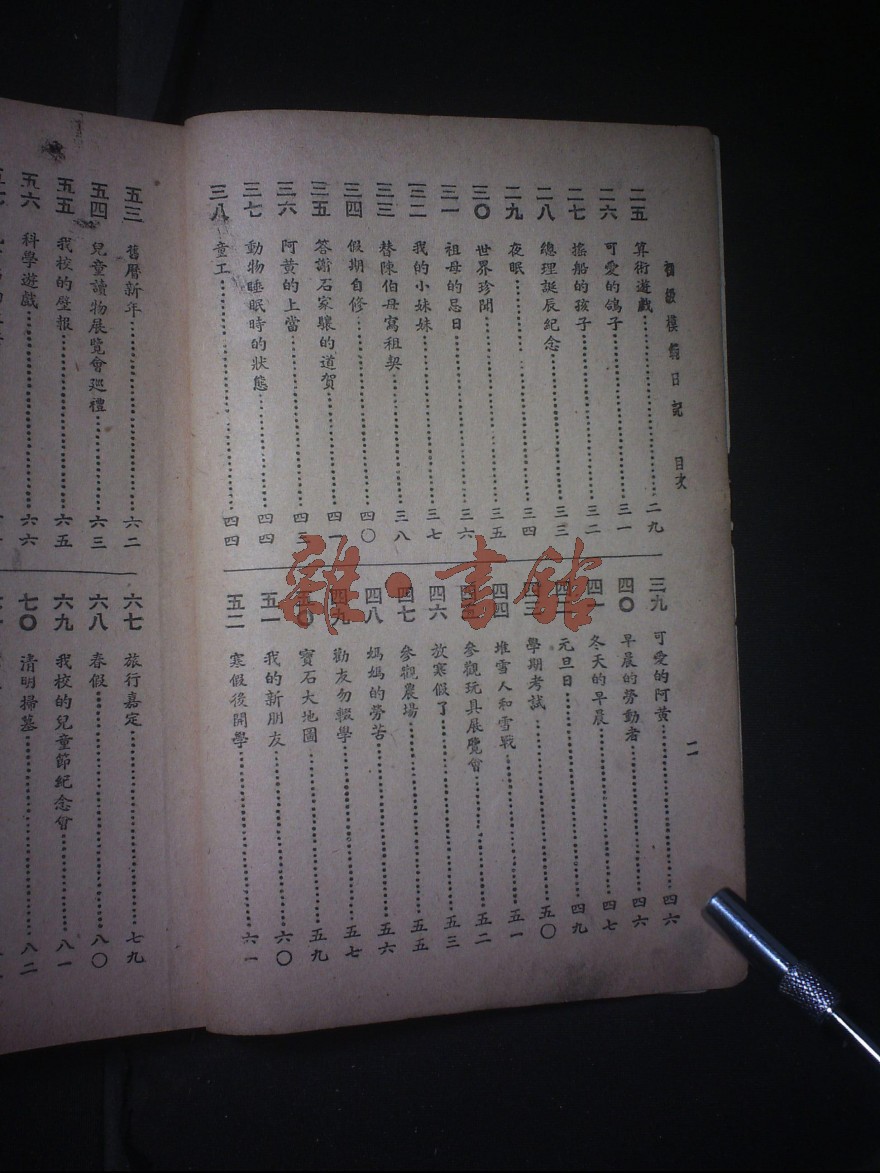 初級模範日記 目次
二五 算術遊戲 二九
二六 可愛的鴿子 三一
二七 搖船的孩子 三二
二八 總理誕辰紀念 三三
二九 夜眠 三四
三〇 世界珍聞 三五
三一 祖母的忌日 三六
三二 我的小妹妹 三七
三三 替陳伯母寫租契 三八
三四 假期自修 四〇
三五 答謝石家驥的道賀 四一
三六 阿黄的上當 四三
三七 動物睡眠時的狀態 四四
三八 童工 四四
三九 可愛的阿黄 四六
四〇 早晨的勞動者 四六
四一 冬天的早晨 四七
四二 元旦日 四九
四三 學期考試 五〇
四四 堆雪人和雪戰 五一
四五 參觀玩具展覽會 五二
四六 放寒假了 五三
四七 參觀農場 五五
四八 媽媽的勞苦 五六
四九 勸友勿輟學 五七
五〇 寶石大地圖 五九
五一 我的新朋友 六〇
五二 寒假後開學 六一
二
五三 舊曆新年 六二
五四 兒童讀物展覽會巡禮 六三
五五 我校的壁報 六五
五六 科學遊戲 六六
六七 旅行嘉定 七九
六八 春假 八〇
六九 我校的兒童節紀念會 八一
七〇 清明掃墓 八二
雜·書館